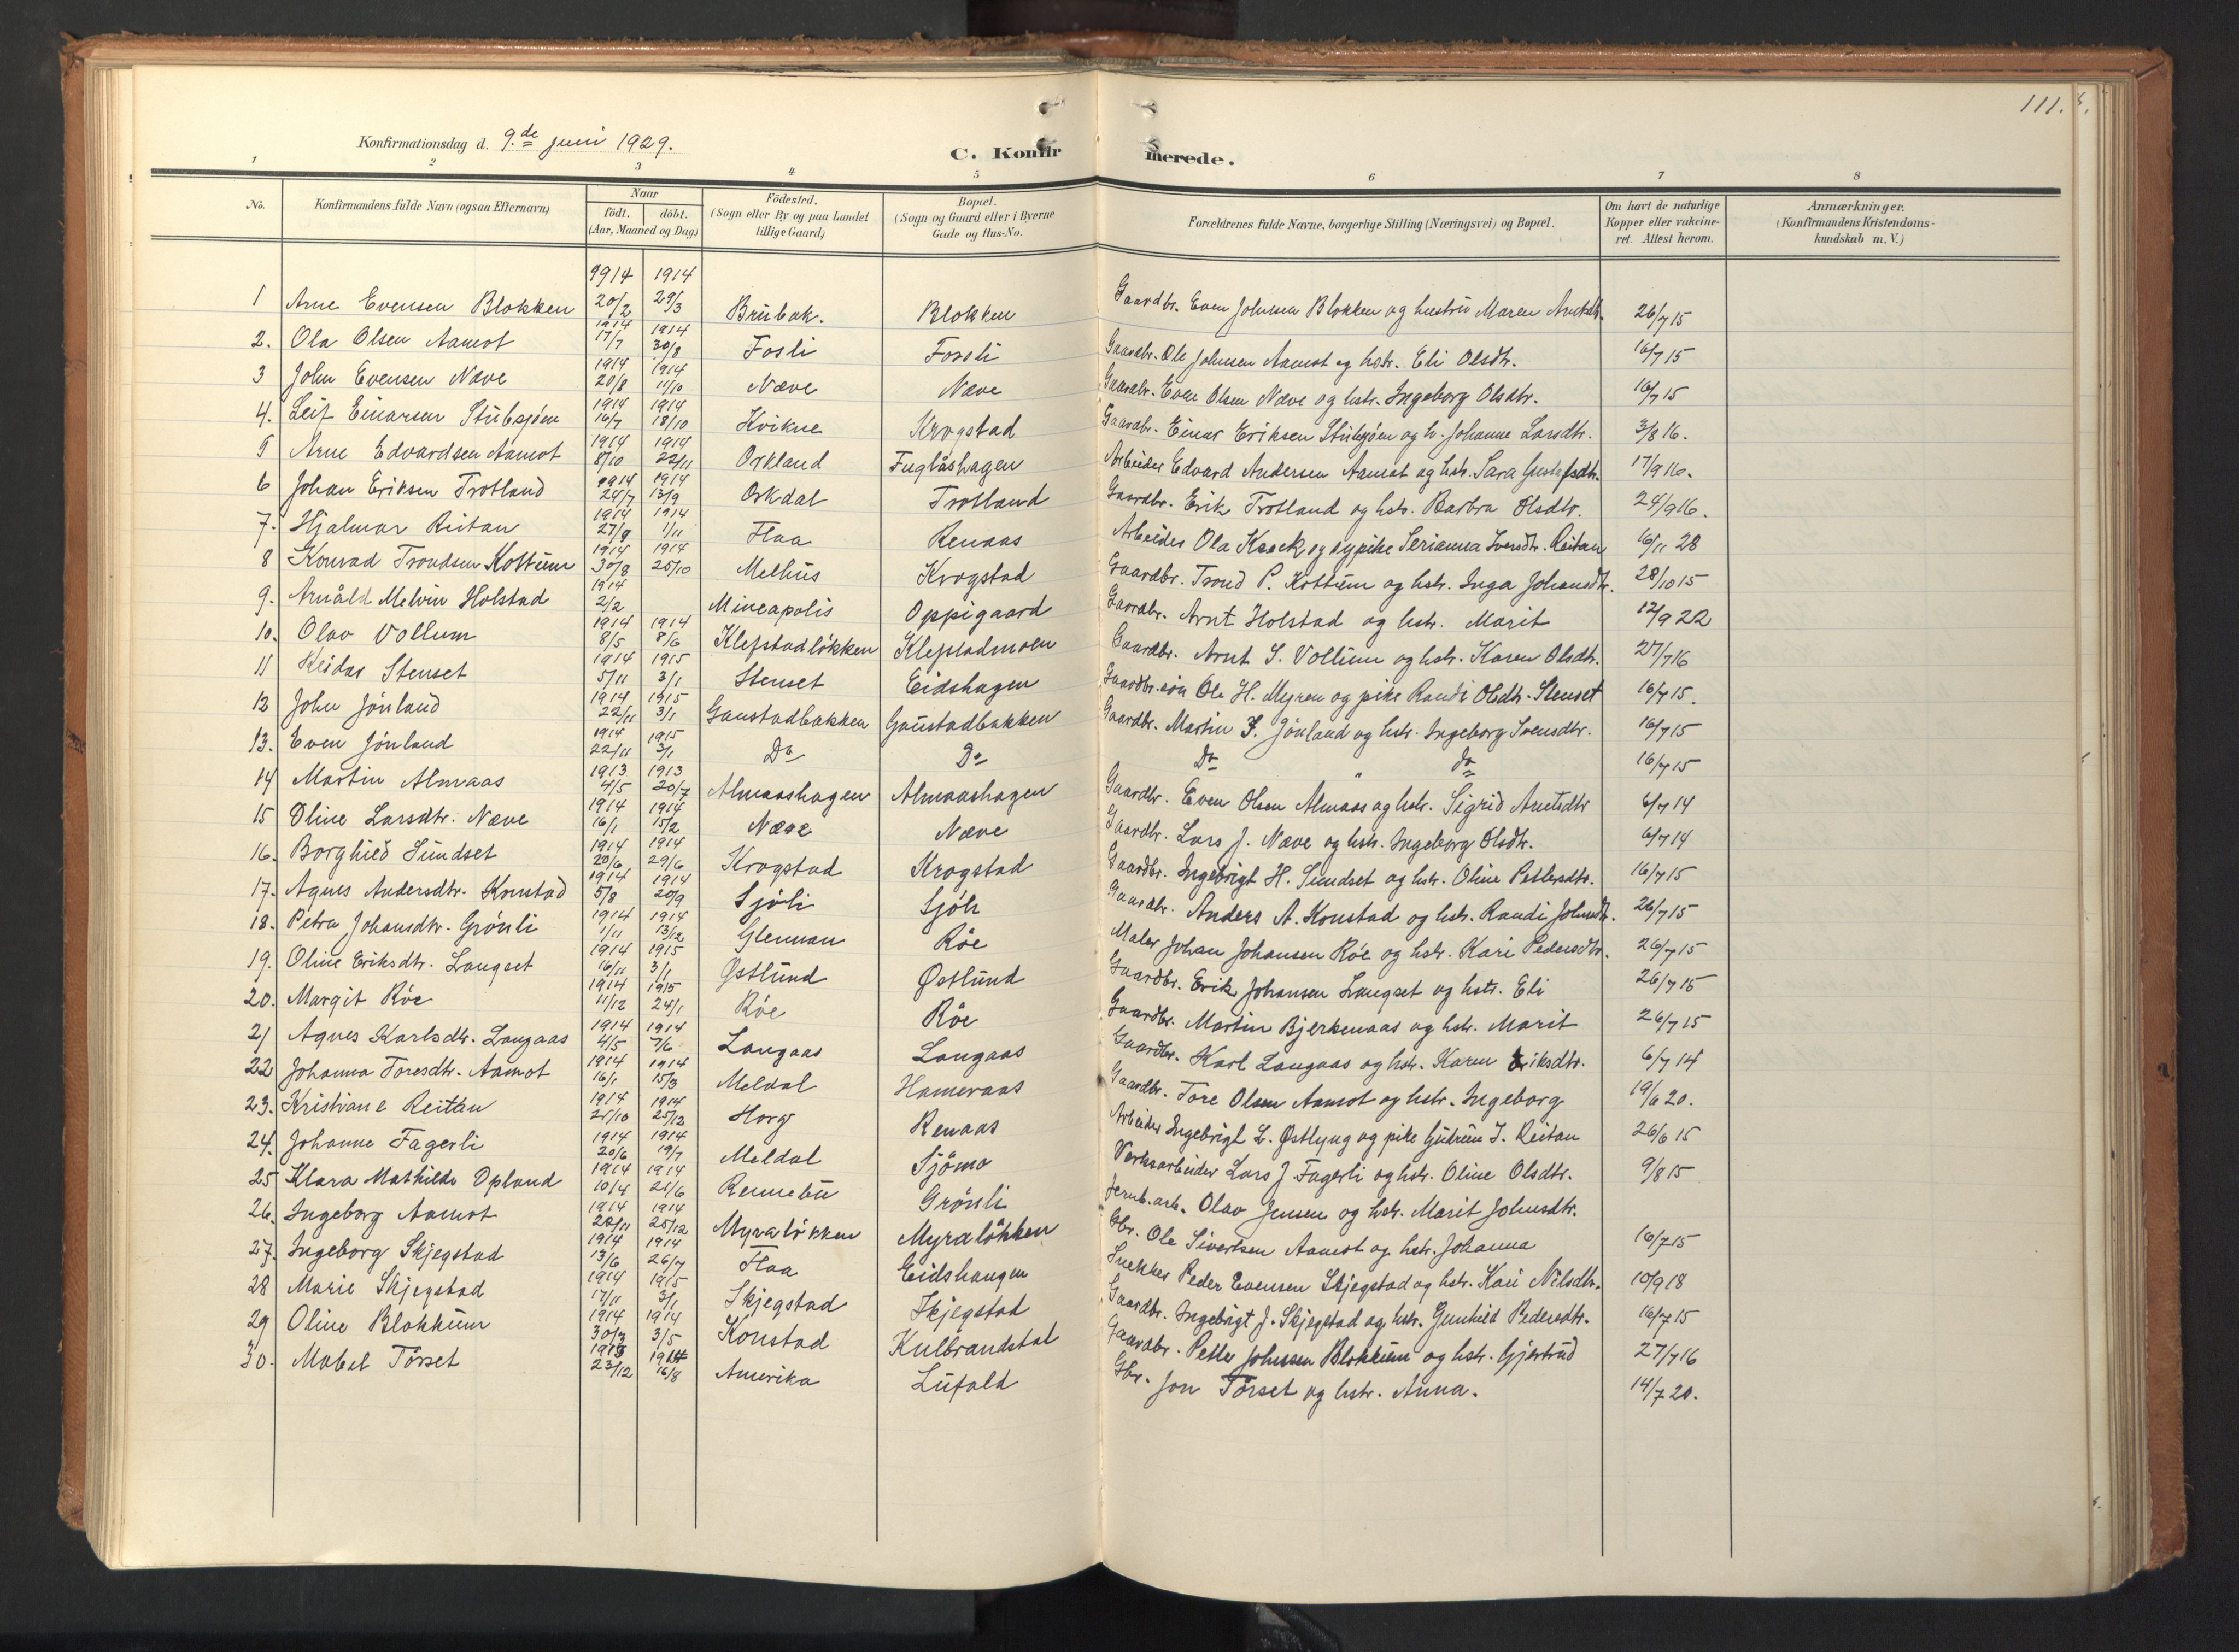 111.
Konfirmationsdag d. 9.de juni 1929.
C. Konfirmerede.
1 2 3 4 5 6 7 8
No. Konfirmandens fulde Navn (ogsaa Efternavn) Naar födt. döbt. (Aar, Maaned og Dag) Födested. (Sogn eller By og paa Landet tillige Gaard) Bopæl. (Sogn og Gaard eller i Byerne Gade og Hus-No. Forældrenes fulde Navne, borgerlige Stilling (Næringsvei) og Bopæl. Om havt de naturlige Kopper eller vakcineret. Attest herom. Anmærkninger. (Konfirmandens Kristendomskundskab m. V.)
1 Arne Evensen Blokken 1914 20/2 1914 29/3 Brubak. Blokken Gaardbr. Even Johnsen Blokken og hustru Maren Arntsdtr. 26/7 15
2. Ola Olsen Aamot 1914 17/7 1914 30/8 Fosli Fosli Gaardbr. Ole Johnsen Aamot og hstr. Eli Olsdtr. 16/7 15
3 John Evensen Næve 1914 20/8 1914 11/10 Næve Næve Gaardbr. Even Olsen Næve og hstr. Ingeborg Olsdtr. 16/7 15
4. Leif Einarsen Stubsjøen 1914 16/7 1914 18/10 Kvikne Krogstad Gaardbr. Einar Eriksen Stubsjøen og h. Johanne Larsdtr. 3/8 16.
5 Arne Edvardsen Aamot 1914 8/10 1914 22/11 Orkland Fuglåshagen Arbeider Edvard Andersen Aamot og hstr. Sara Gustafsdtr. 17/9 16.
6 Johan Eriksen Trotland 1914 24/7 1914 13/9 Orkdal Trotland Gaardbr. Erik Trotland og hstr. Barbra Olsdtr. 24/9 16.
7. Hjalmar Reitan 1914 27/9 1914 1/11 Flaa Renaas Arbeider Ola Kaack og sypike Serianna Iversdtr. Reitan 16/11 28
8 Konrad Trondsen Kottum 1914 30/8 1914 25/10 Melhus Krogstad Gaardbr. Trond P. Kottum og hstr. Inga Johansdtr. 28/10 15
9. Arnåld Melvin Holstad 1914 2/2 Mineapolis Oppigaard Gaardbr. Arnt Holstad og hstr. Marit 12/9 22
10. Olav Vollum 1914 8/5 1914 8/6 Klefstadløkken Klefstadmoen Gaardbr. Arnt S. Vollum og hstr. Karen Olsdtr. 27/7 16
11 Reidar Stenset 1914 5/11 1915 3/1 Stenset Eidshagen Gaardbr.søn Ole H. Myren og pike Randi Olsdtr. Stenset 16/7 15.
12 John Jønland 1914 22/11 1915 3/1 Gaustadbakken Gaustadbakken Gaardbr. Martin J. Jønland og hstr. Ingeborg Svensdtr. 16/7 15
13. Even Jønland 1914 22/11 1915 3/1 Do Do Do " do 16/7 15
14 Martin Almaas 1913 4/5 1913 20/7 Almaashagen Almaashagen Gaardbr. Even Olsen Almaas og hstr. Sigrid Arntsdtr 6/7 14
15 Oline Larsdtr. Næve 1914 16/1 1914 15/2 Næve Næve Gaardbr. Lars J. Næve og hstr. Ingeborg Olsdtr. 6/7 14
16. Borghild Sundset 1914 20/6 1914 29/6 Krogstad Krogstad Gaardbr. Ingebrigt H. Sundset og hstr. Oline Pettersdtr. 16/7 15
17. Agnes Andersdtr. Konstad 1914 5/8 1914 20/9 Sjøli Sjøli Gaardbr. Anders A. Konstad og hstr. Randi Johnsdtr. 26/7 15
18. Petra Johansdtr. Grönli 1914 1/11 1914 13/12 Glennan Röe Maler Johan Johansen Röe og hstr. Kari Pedersdtr. 26/7 15
19. Oline Eriksdtr. Langset 1914 16/11 1915 3/1 Østlund Østlund Gaardbr. Erik Johansen Langset og hstr. Eli 26/7 15
20. Margit Röe 1914 11/12 1915 24/1 Röe Röe Gaardbr. Martin Bjerkenaas og hstr. Marit 26/7 15
21 Agnes Karlsdtr. Langaas 1914 4/5 1914 7/6 Langaas Langaas Gaardbr. Karl Langaas og hstr. Karen Eriksdtr. 6/7 14
22 Johanna Toresdtr. Aamot 1914 16/1 1914 15/3 Meldal Hameraas Gaardbr. Tore Olsen Aamot og hstr. Ingeborg 19/6 20.
23. Kristiane Reitan 1914 25/10 1914 25/12 Horg Renaas Arbeider Ingebrigt L. Østlyng og pike Gjutrun J. Reitan 26/6 15
24. Johanne Fagerli 1914 20/6 1914 19/7 Meldal Sjömo Verksarbeider Lars J. Fagerli og hstr. Oline Olsdtr. 9/8 15
25 Klara Mathilde Opland 1914 10/4 1914 21/6 Rennebu Grönli Jernb.arb. Olav Jensen og hstr. Marit Johnsdtr.
26. Ingeborg Aamot 1914 22/11 1914 25/12 Myraløkken Myraløkken Gbr. Ole Sivertsen Aamot og hstr. Johanna 16/7 15
27. Ingeborg Skjegstad 1914 13/6 1914 26/7 Flaa Eidshaugen Snekker Peder Evensen Skjegstad og hstr. Kari Nilsdtr. 10/9 18
28 Marie Skjegstad 1914 17/11 1915 3/1 Skjegstad Skjegstad Gaardbr. Ingebrigt J. Skjegstad og hstr. Gunhild Pedersdtr. 16/7 15
29 Oline Blokkum 1914 30/3 1914 3/5 Konstad Kulbrandstal Gaardbr. Petter Johnsen Blokkum og hstr. Gjertrud 27/7 16
30. Mabel Törset 1913 23/12 1914 16/8 Amerika Lufald Gbr. Jon Törset og hstr. Anna. 14/7 20.